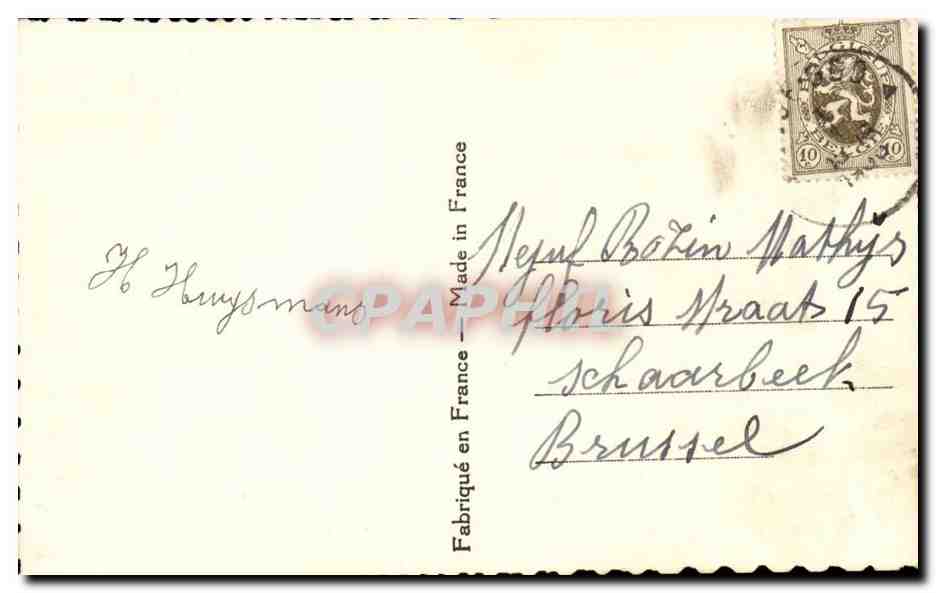 H Huysmans
Fabriqué en France — Made in France
BELGIQUE
BELGIË
10 10
Mathijs
floris straat 15
schaarbeek
Brussel
CPAPHIL